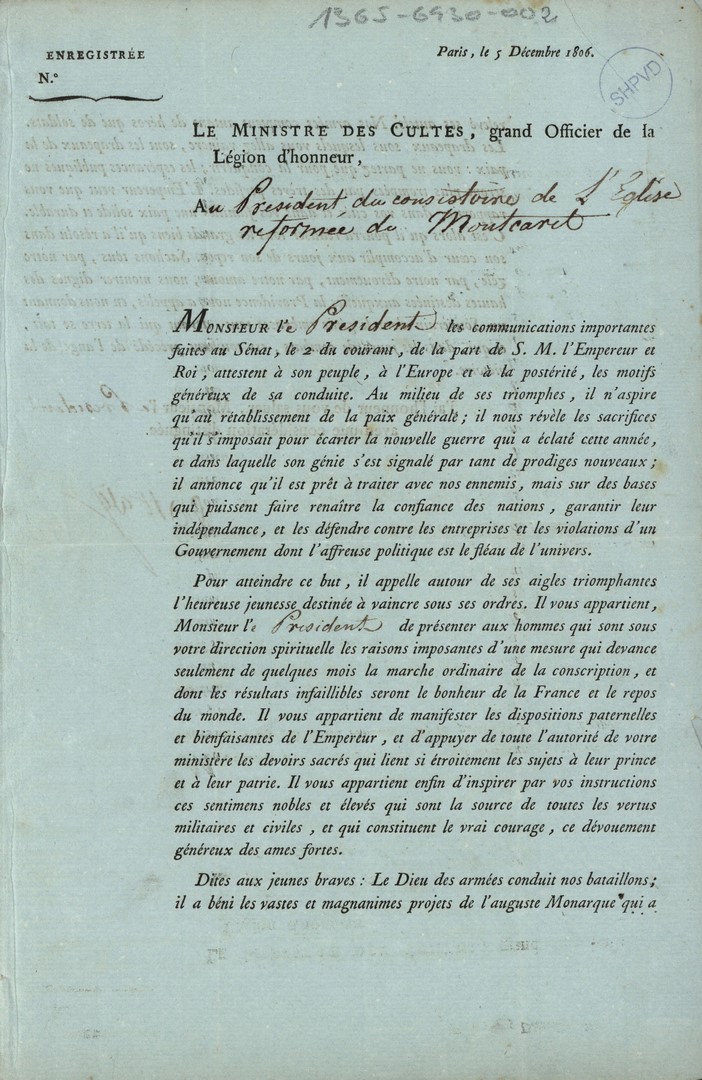 1365-6930-002
ENREGISTRÉE
N.°
Paris, le 5 Décembre 1806.
SHPVD
LE MINISTRE DES CULTES, grand Officier de la
Légion d'honneur,
Au President du consistoire de L'Eglise
reformée de Montcaret
MONSIEUR l'e President les communications importantes
faites au Sénat, le 2 du courant, de la part de S. M. l'Empereur et
Roi, attestent à son peuple, à l'Europe et à la postérité, les motifs
généreux de sa conduite. Au milieu de ses triomphes, il n'aspire
qu'au rétablissement de la paix générale; il nous révèle les sacrifices
qu'il s'imposait pour écarter la nouvelle guerre qui a éclaté cette année,
et dans laquelle son génie s'est signalé par tant de prodiges nouveaux;
il annonce qu'il est prêt à traiter avec nos ennemis, mais sur des bases
qui puissent faire renaître la confiance des nations, garantir leur
indépendance, et les défendre contre les entreprises et les violations d'un
Gouvernement dont l'affreuse politique est le fléau de l'univers.
Pour atteindre ce but, il appelle autour de ses aigles triomphantes
l'heureuse jeunesse destinée à vaincre sous ses ordres. Il vous appartient,
Monsieur l'e President de présenter aux hommes qui sont sous
votre direction spirituelle les raisons imposantes d'une mesure qui devance
seulement de quelques mois la marche ordinaire de la conscription, et
dont les résultats infaillibles seront le bonheur de la France et le repos
du monde. Il vous appartient de manifester les dispositions paternelles
et bienfaisantes de l'Empereur, et d'appuyer de toute l'autorité de votre
ministère les devoirs sacrés qui lient si étroitement les sujets à leur prince
et à leur patrie. Il vous appartient enfin d'inspirer par vos instructions
ces sentimens nobles et élevés qui sont la source de toutes les vertus
militaires et civiles, et qui constituent le vrai courage, ce dévouement
généreux des ames fortes.
Dites aux jeunes braves : Le Dieu des armées conduit nos bataillons;
il a béni les vastes et magnanimes projets de l'auguste Monarque qui a